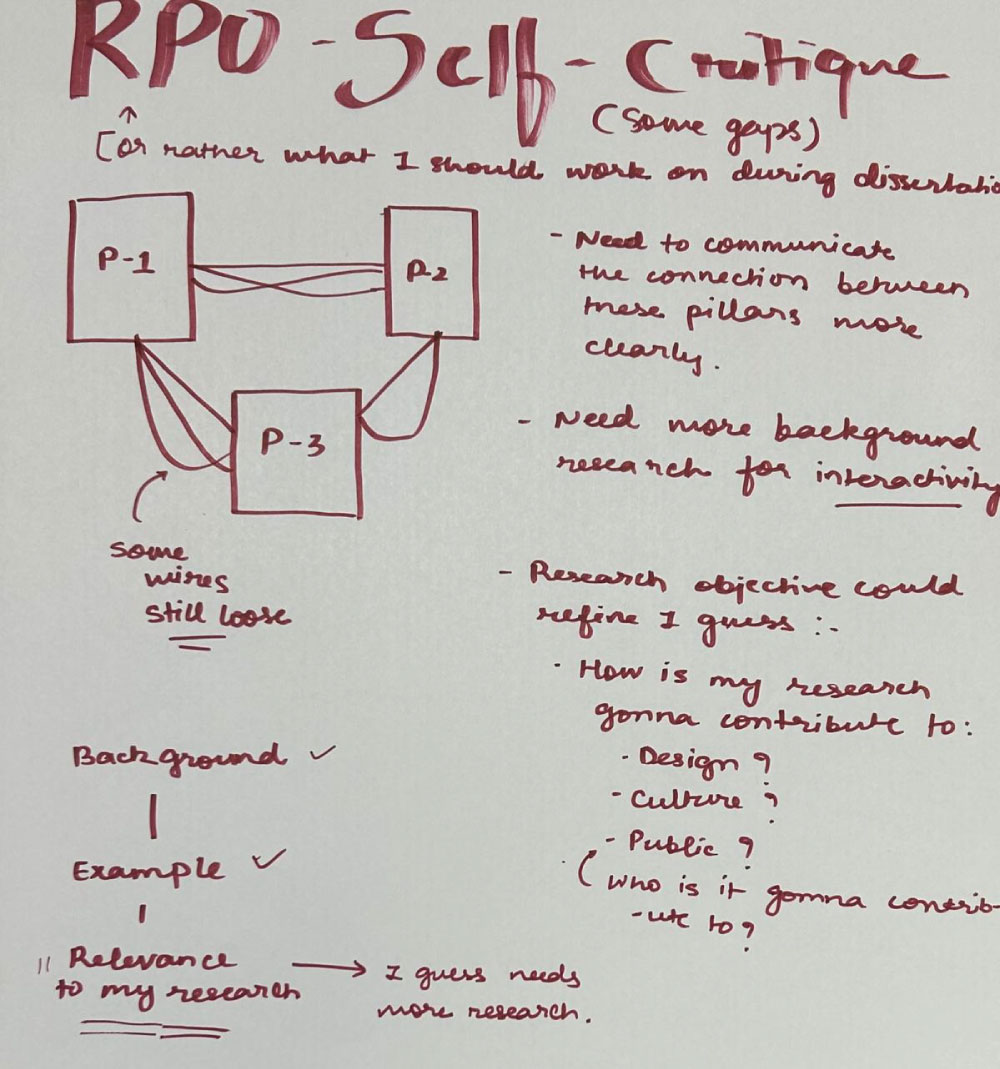 RPO - Self - Critique
(Some gaps)
[or rather what I should work on during dissertatio
P-1
P-2
P-3
some
wires
still loose
- Need to communicate
the connection between
these pillars more
clearly.
- Need more background
research for interactivity
- Research objective could
refine I guess :-
· How is my research
gonna contribute to:
- Design ?
- Culture ?
- Public ?
(who is it gonna contrib-
-ute to?
Background ✓
Example ✓
" Relevance
to my research
→ I guess needs
more research.